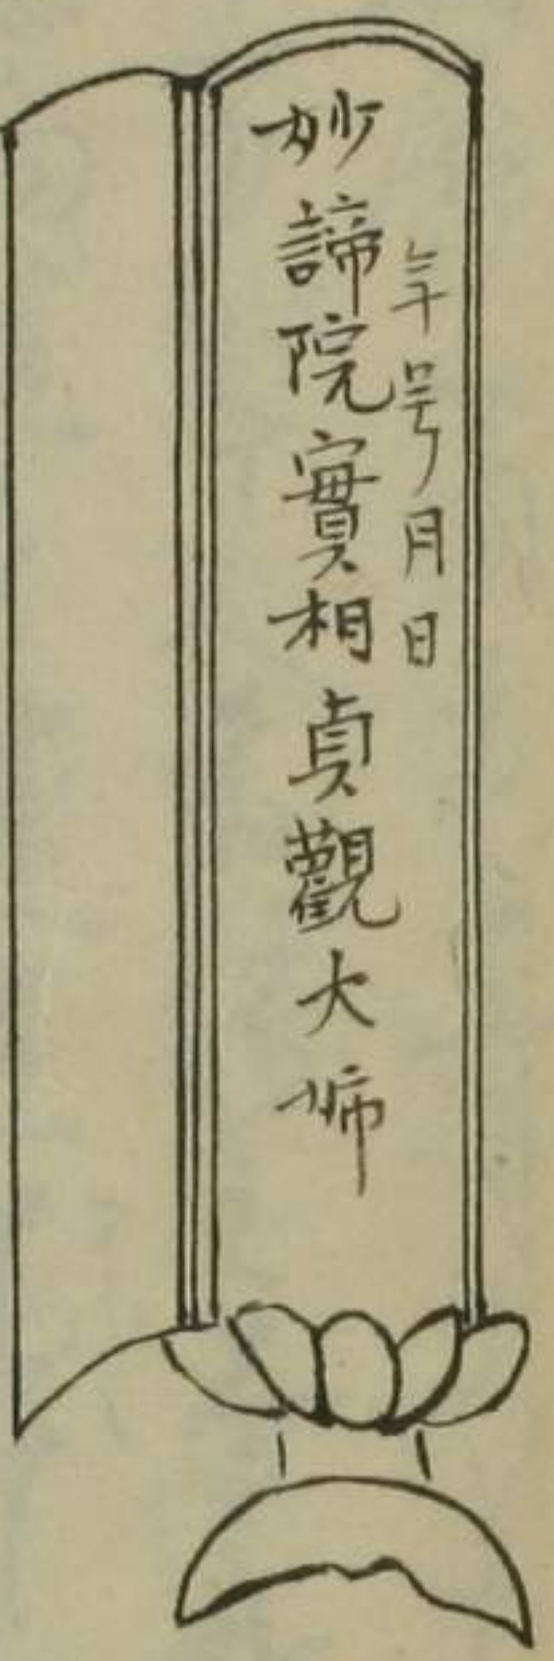 年号月日
妙諦院實相貞觀大姉